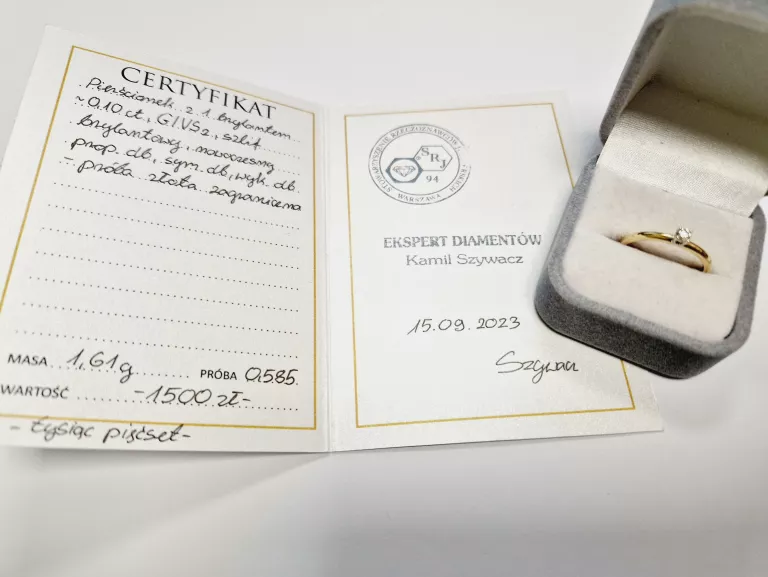 CERTYFIKAT
Pierścionek z 1 brylantem
~0.10 ct, G/VS2, szlif
brylantowy, nowoczesny
prop. db, sym. db, wyk. db.
- próba złota zagraniczna
MASA 1,61g PRÓBA 0.585.
WARTOŚĆ -1500 zł-
- tysiąc pięćset-
STOWARZYSZENIE RZECZOZNAWCÓW
WARSZAWA
SRJ
94
EKSPERT DIAMENTÓW
Kamil Szywacz
15.09.2023
Szywacz